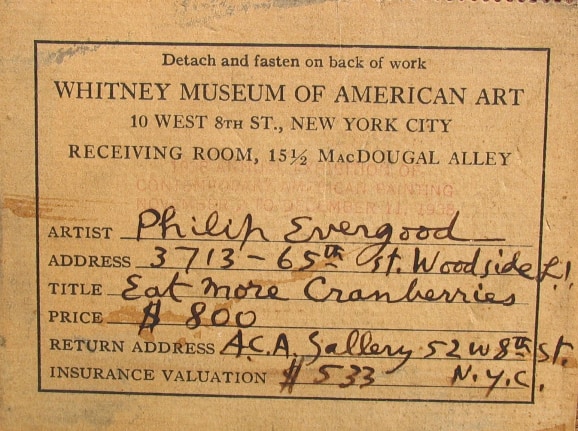 Detach and fasten on back of work
WHITNEY MUSEUM OF AMERICAN ART
10 WEST 8TH ST., NEW YORK CITY
RECEIVING ROOM, 15½ MACDOUGAL ALLEY
OF
CONTEMPORARY AMERICAN PAINTING
TO DECEMBER
ARTIST Philip Evergood
ADDRESS 3713 - 65th St. Woodside L.I.
TITLE Eat More Cranberries
PRICE $ 800
RETURN ADDRESS A.C.A. Gallery 52 W 8th St.
INSURANCE VALUATION $ 533 N.Y.C.